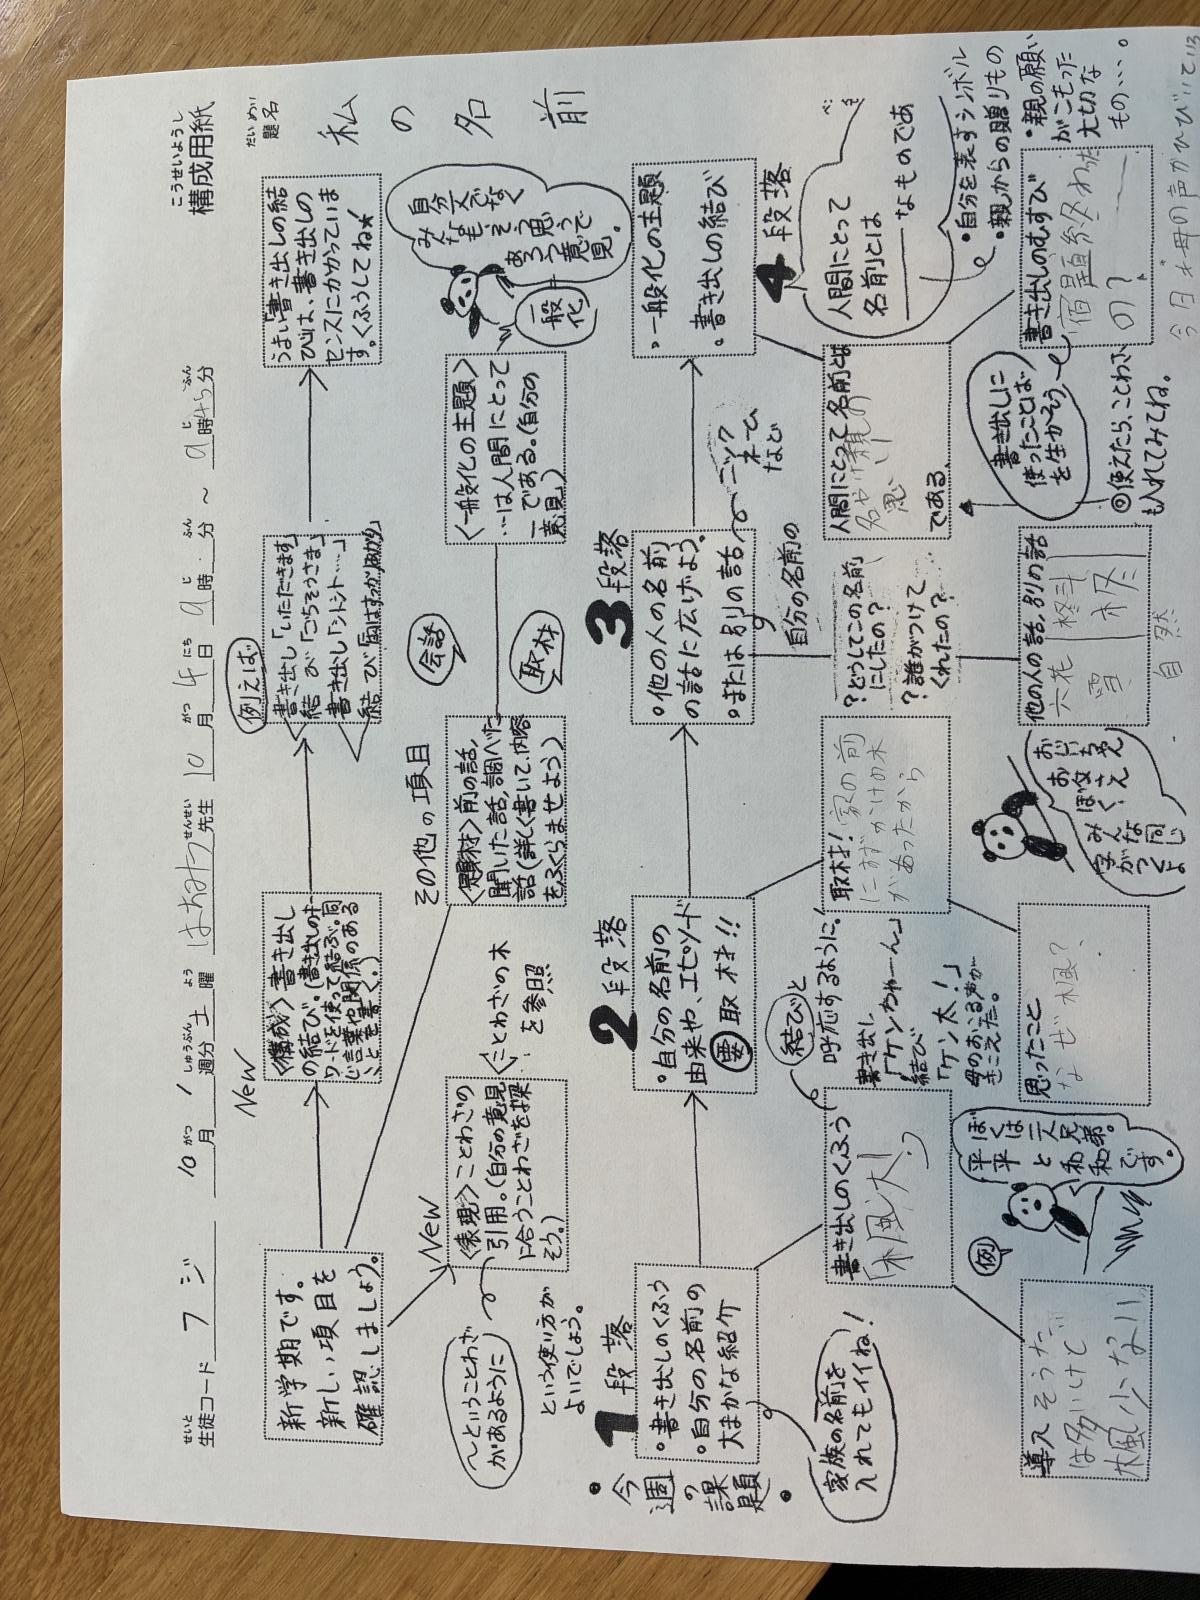 構成用紙
こうせいようし
生徒コード フジ 10月1週分 土曜 はねだ先生 10月4日 9時 分 ～ 9時45分
題名
だいめい
私の名前
新学期です。
新しい項目を
確認しましょう。
New
〈構成〉書き出し
の結び。(書き出しのキー
ワードを使って結ぶ。同
じ言葉や関係のある
ことを書く。)
例えば
書き出し「いただきます」
結び「ごちそうさま」
書き出し「シトシト……」
うまい「書き出しの結
び」は、書き出しの
センスにかかっていま
す。くふうしてね★
New
〈表現〉ことわざの
引用。(自分の意見
に合うことわざを探
そう。)
〈ことわざの木
を参照
～ということわざ
があるように
という使い方が
よいでしょう。
その他の項目
〈題材〉前の話、
聞いた話、調べた
話(詳しく書いて、内容
をふくらませよう)
会話
取材
〈一般化の主題〉
…は人間にとって
―である。(自分の
意見)
一般化
自分だけでなく
みんなも、そう思う
あろう意
見。
・今週の課題・
1段落
・書き出しのくふう
・自分の名前の
大まかな紹介
家族の名前を
入れてもイイね!
2段落
・自分の名前の
由来や、エピソード
要取材!!
3段落
・他の人の名前
の話に広げよう。
・または別の話
ニックネームなど
自分の名前の
4段落
・一般化の主題
・書き出しの結び
人間にとって
名前とは
―なものであ
る
・自分を表すシンボル
・親からの贈りもの
・親の願い
がこもった
大切な
もの…。
書き出しのくふう
「楓大!」
結びと
呼応するように!
書き出し
「ケンちゃーん」
結び
「ケン太!」
母のおこる声が
きこえた。
取材!家の前
にすずかけの木
があったから
?どうしてこの名前
にしたの?
?誰がつけて
くれたの?
人間にとって名前とは
である
書き出しに
使ったことば
を生かそう
◎使えたら、ことわざ
も入れてみてね。
例
ぼくは
平平と三和
兄弟
です。
導入 そうた
は多いけど
楓少ない
思ったこと
なぜ楓?
おじいちゃん
お父さん
ぼく、
みんな同じ
字がつくよ
他の人の話、別の話
六花
雪
柊斗
柊
自然
書き出しのむすび
宿題終わった
の?
今日も母の声がひびいている